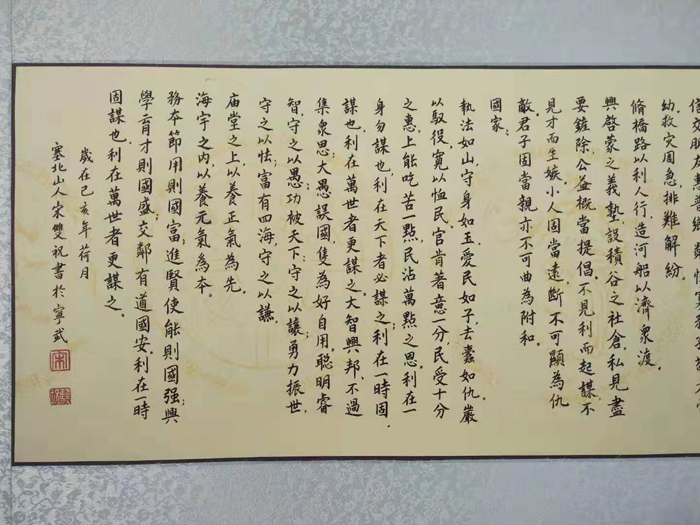 交朋友惠普鄉鄰
幼救灾周急.排難解紛
脩橋路以利人行.造河船以濟衆渡.
興啓蒙之義塾.設積谷之社倉.私見盡
要鏟除.公益概當提倡.不見利而起謀.不
見才而生嫉.小人固當遠.斷不可顯為仇
敵.君子固當親.亦不可曲為附和.
國家:
執法如山.守身如玉.愛民如子.去蠹如仇.嚴
以馭役.寬以恤民.官肯著意一分.民受十分
之惠.上能吃苦一點.民沾萬點之恩.利在一
身勿謀也.利在天下者必謀之.利在一時固.
謀也.利在萬世者更謀之.大智興邦.不過
集衆思.大愚誤國.隻為好自用.聰明睿
智.守之以愚;功被天下;守之以讓;勇力振世,
守之以怯;富有四海,守之以謙.
廟堂之上.以養正氣為先.
海宇之内.以養元氣為本.
務本節用則國富;進賢使能則國强;興
學育才則國盛;交鄰有道國安.利在一時
固謀也.利在萬世者更謀之.
歲在己亥年荷月
塞北山人宋雙祝書於寧武